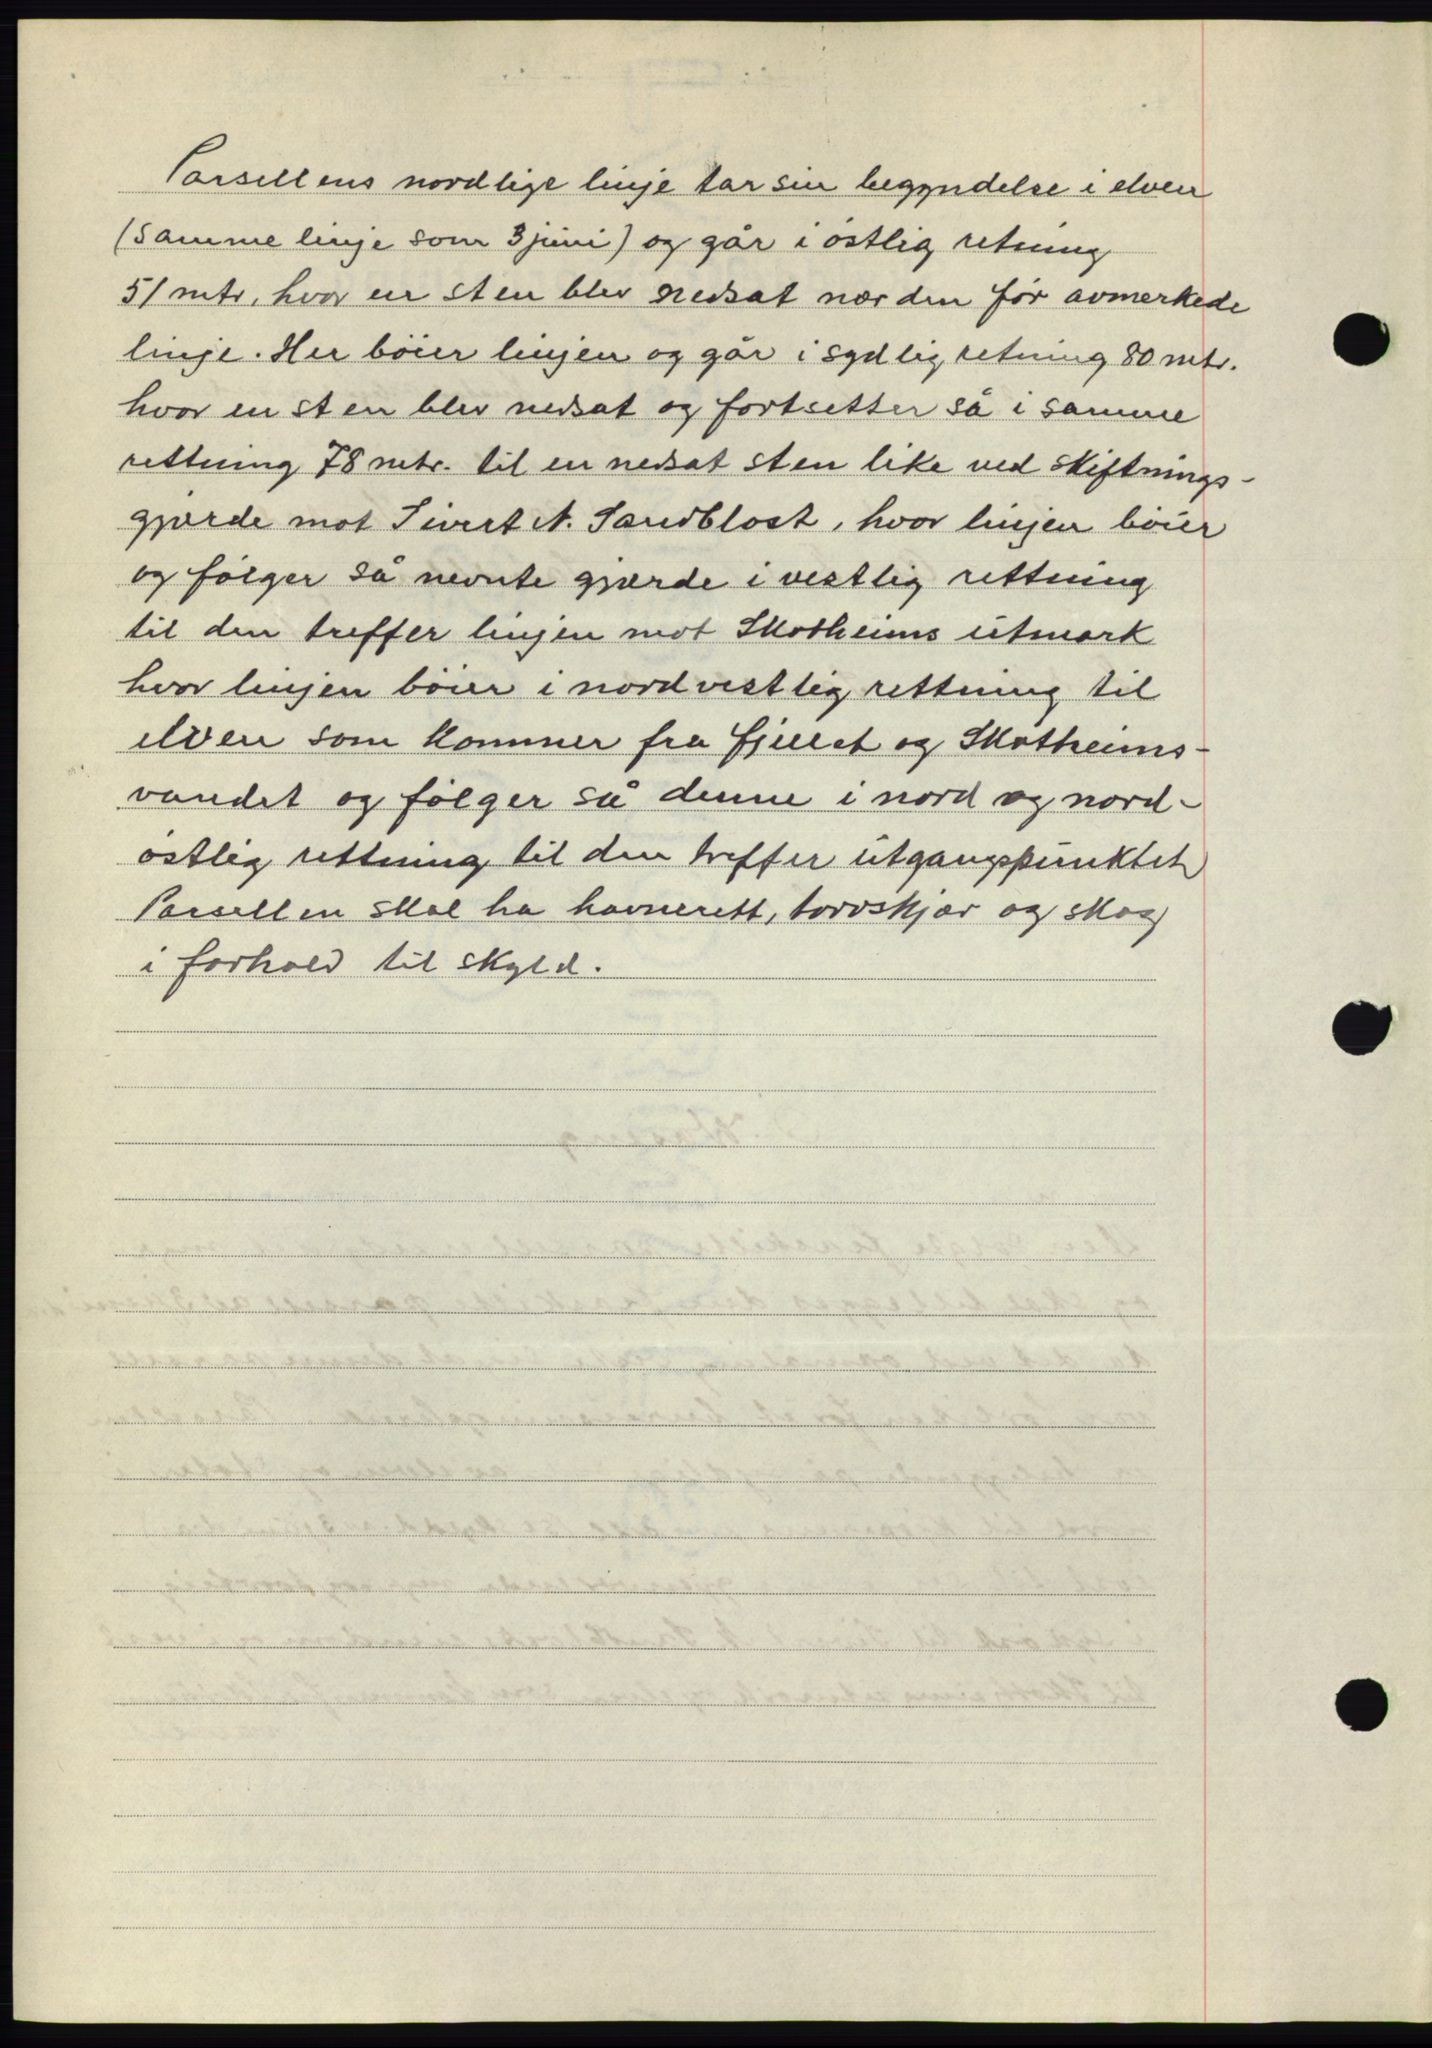 Parsellens nordlige linje tar sin begyndelse i elven
(samme linje som 3 juni) og går i östlig retning
51 mtr, hvor en sten blev nedsat nær den før avmerkede
linje. Her böier linjen og går i sydlig retning 80 mtr.
hvor en sten blev nedsat og fortsetter så i samme
rettning 78 mtr. til en nedsat sten like ved skiftnings-
gjærde mot Sivert N. Sandblost, hvor linjen böier
og følger så nevnte gjærde i vestlig rettning
til den treffer linjen mot Skotheims utmark
hvor linjen böier i nordvestlig rettning til
elven som kommer fra fjellet og Skotheims-
vandet og følger så denne i nord og nord-
östlig rettning til den treffer utgangspunktet
Parsellen skal ha havnerett, torvskjær og skog
i forhold til skyld.